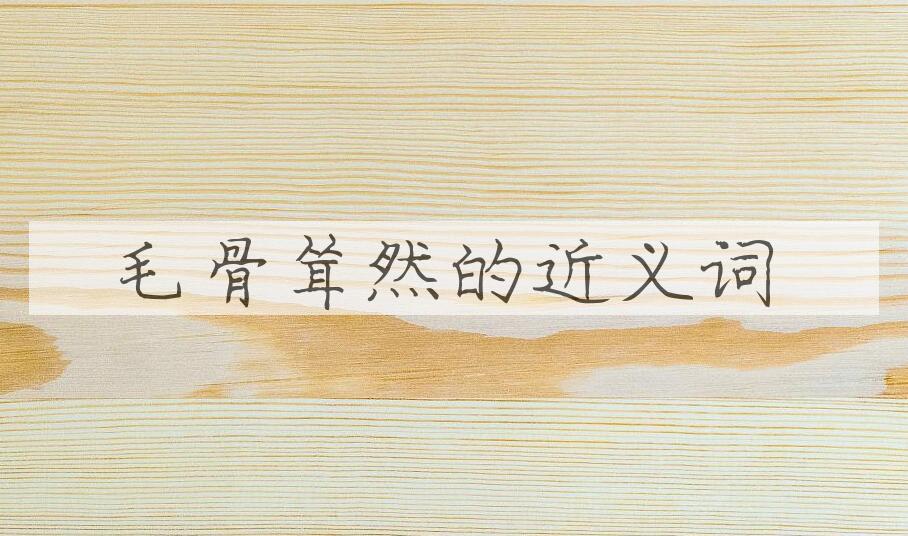 毛骨耸然的近义词